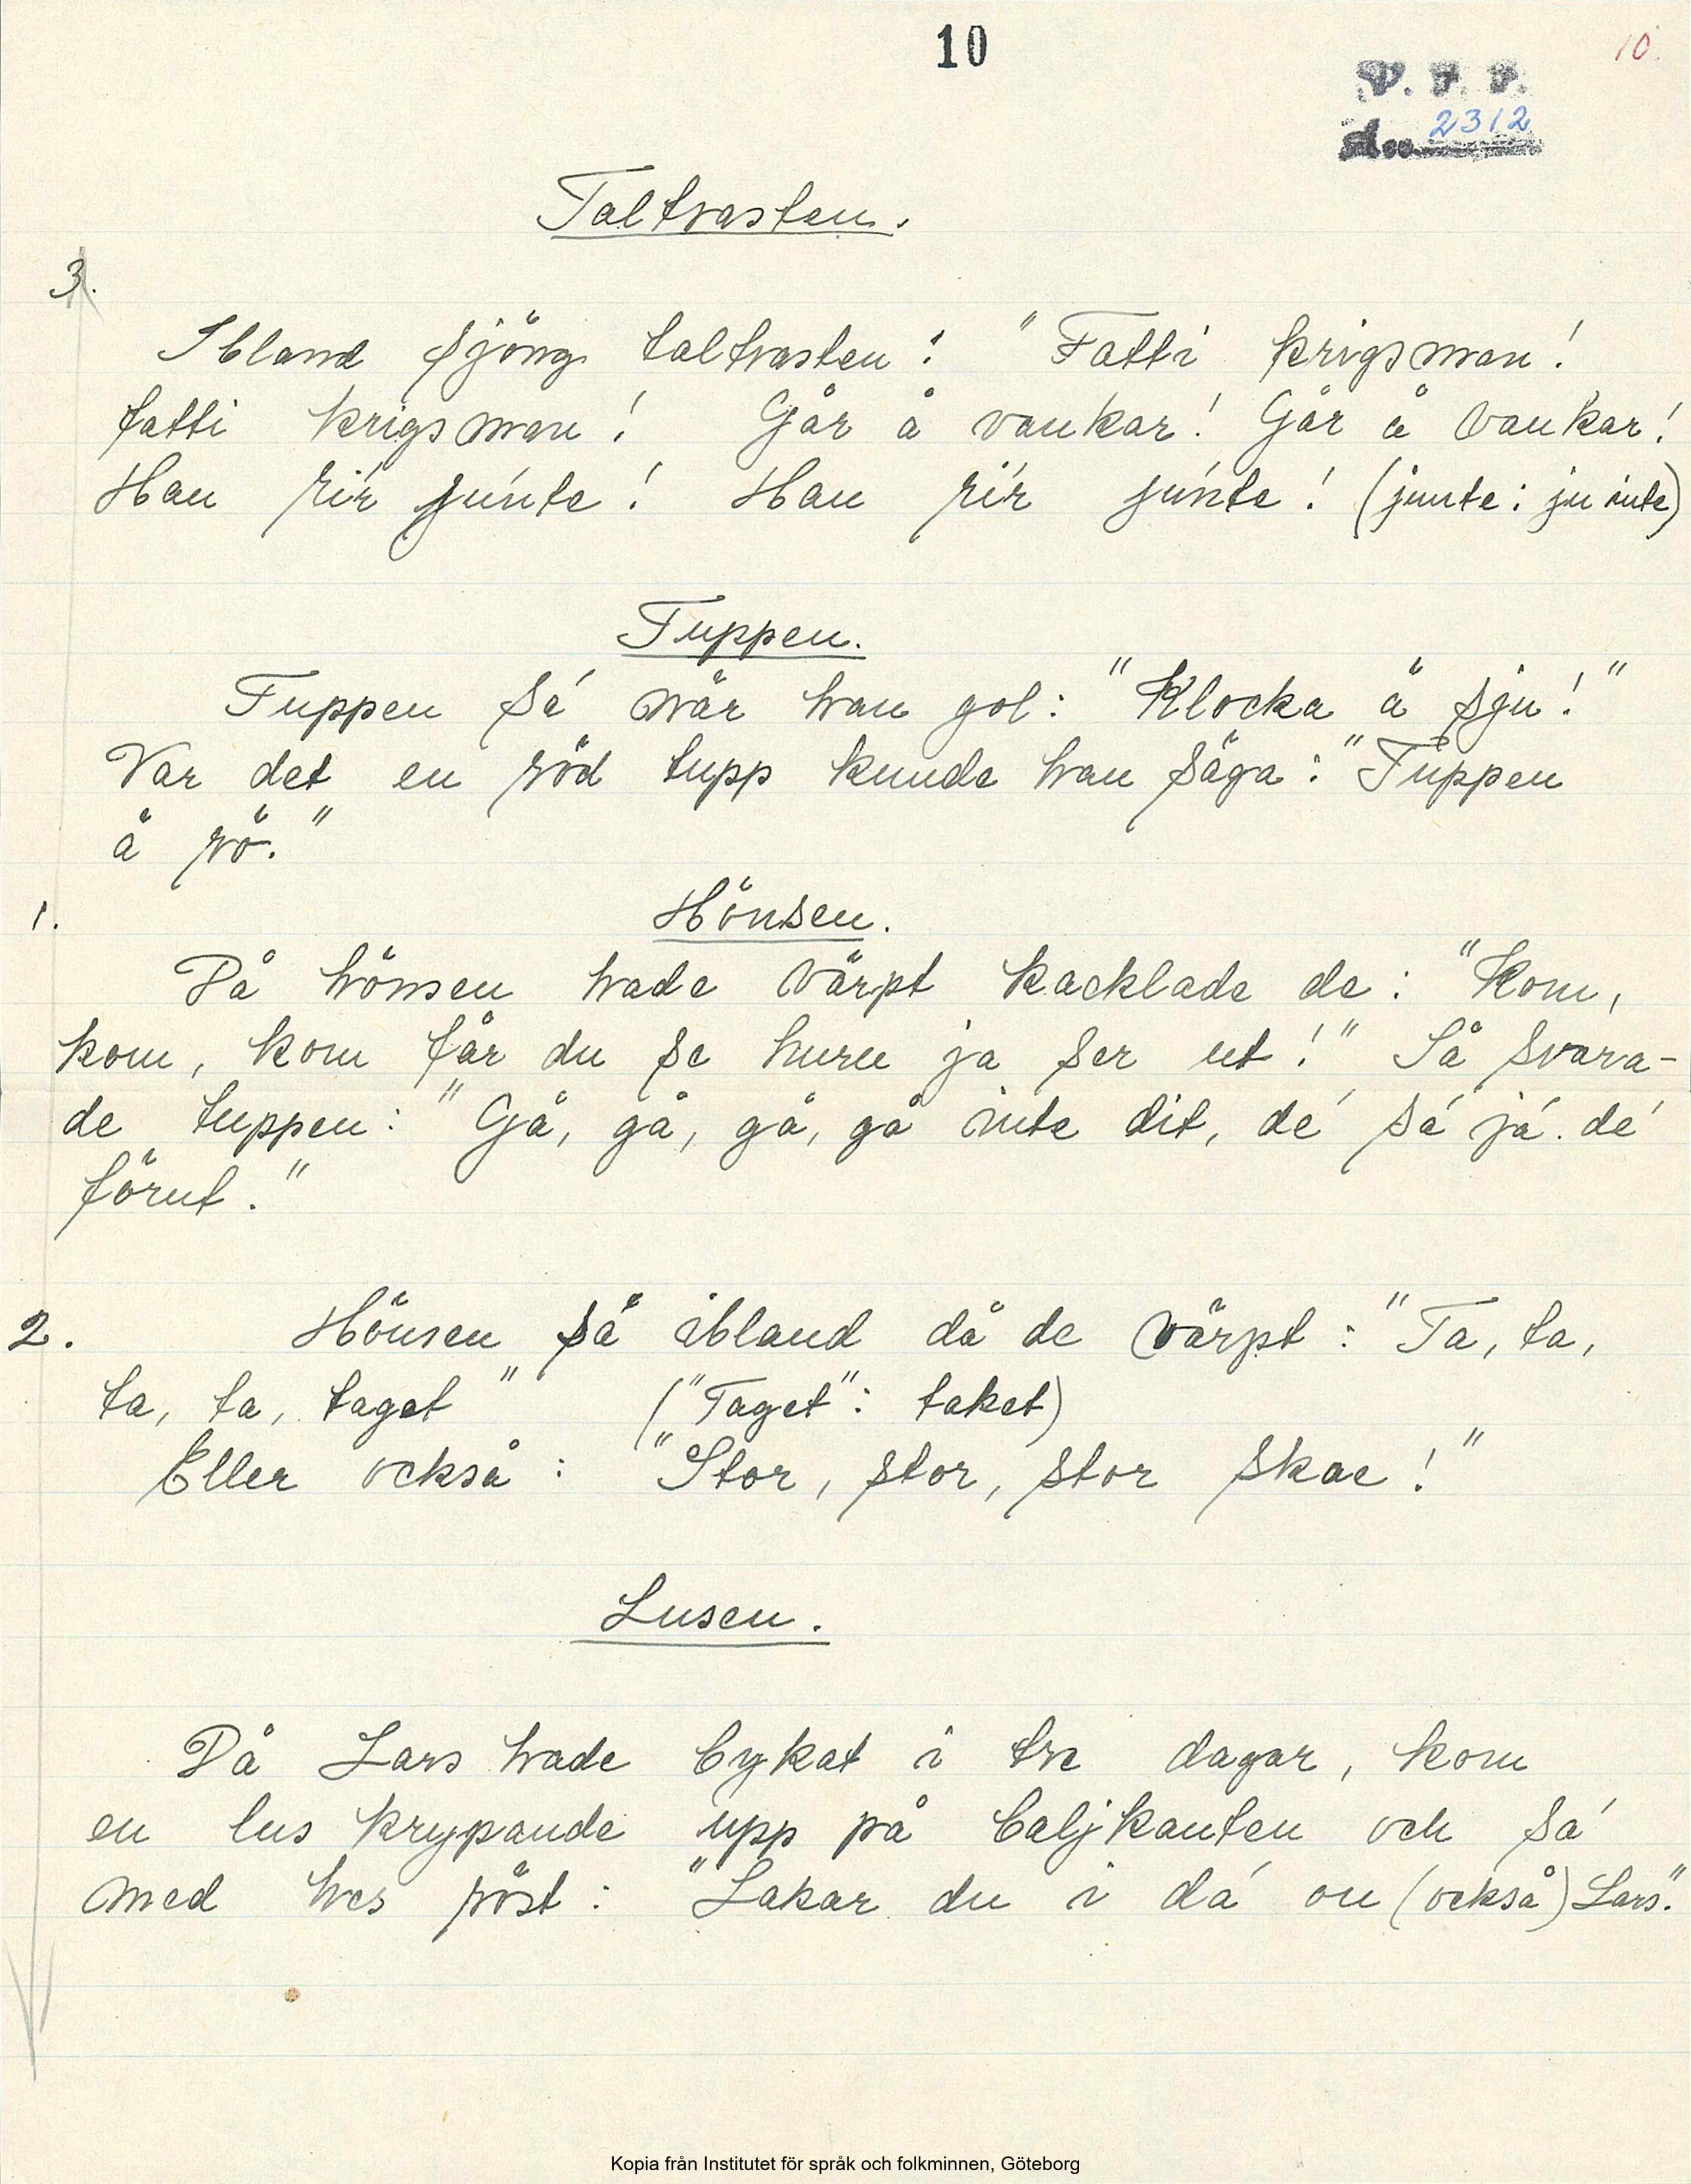 10
10.
V. F. F.
Acc. 2312
Taltrasten.
3.
Ibland sjöng taltrasten: "Fatti krigsman!
fatti krigsman! Går å vankar! Går å vankar!
Han rír júnte! Han rír júnte! (junte: ju inte)
Tuppen.
Tuppen sá när han gol: "Klocka ä sju!"
Var det en röd tupp kunde han säga: "Tuppen
ä rö."
1.
Hönsen.
Då hönsen hade värpt kacklade de: "Kom,
kom, kom får du se huru ja ser ut!" Så svara-
de tuppen: "Gå, gå, gå, gå inte dit, dé sá já dé
förut."
2. Hönsen sá ibland då de värpt: "Ta, ta,
ta, ta, taget" ("Taget": taket)
Eller också: "Stor, stor, stor skae!"
Lusen.
Då Lars hade bykat i tre dagar, kom
en lus krypande upp på baljkanten och sá
med hes röst: "Lakar du i dá ou (också) Lars."
Kopia från Institutet för språk och folkminnen, Göteborg